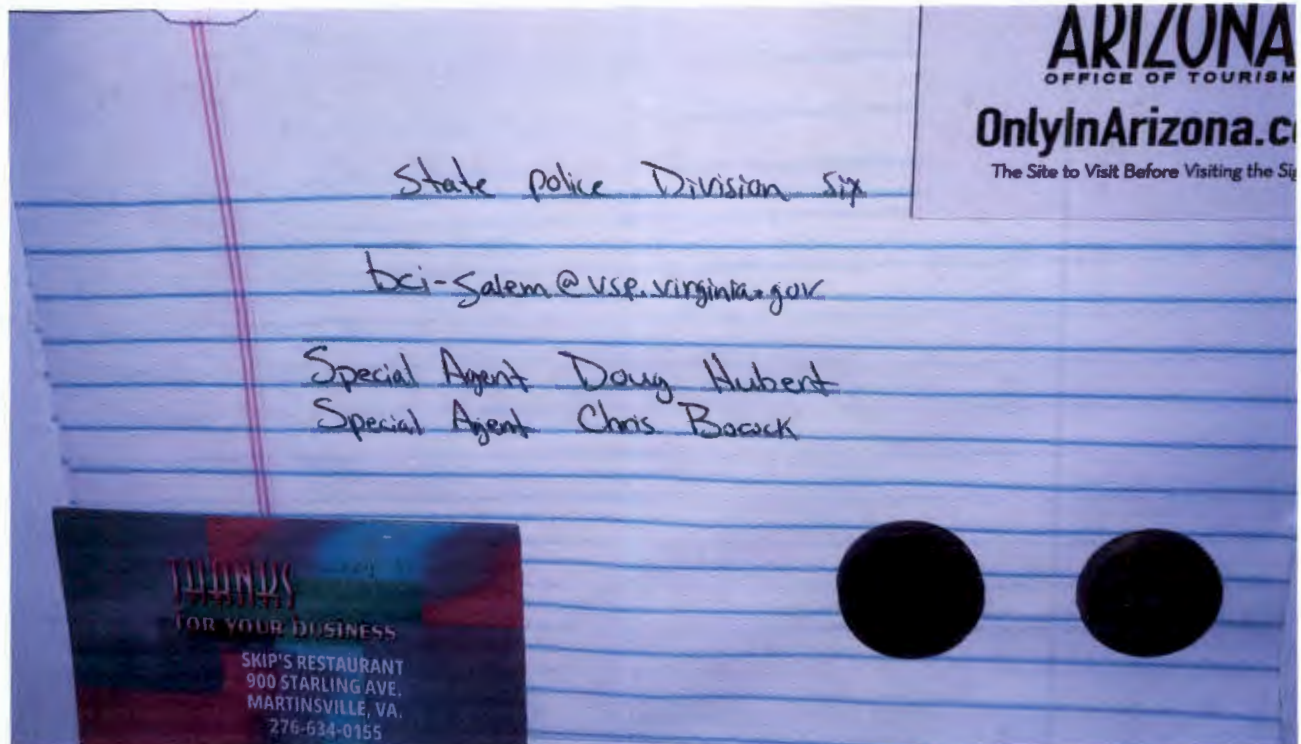 ARIZONA
OFFICE OF TOURISM
OnlyInArizona.c
The Site to Visit Before Visiting the
State police Division six
bci-salem@vsp.virginia.gov
Special Agent Doug Hubert
Special Agent Chris Bocock
THANKS
FOR YOUR BUSINESS
SKIP'S RESTAURANT
900 STARLING AVE.
MARTINSVILLE, VA.
276-634-0155